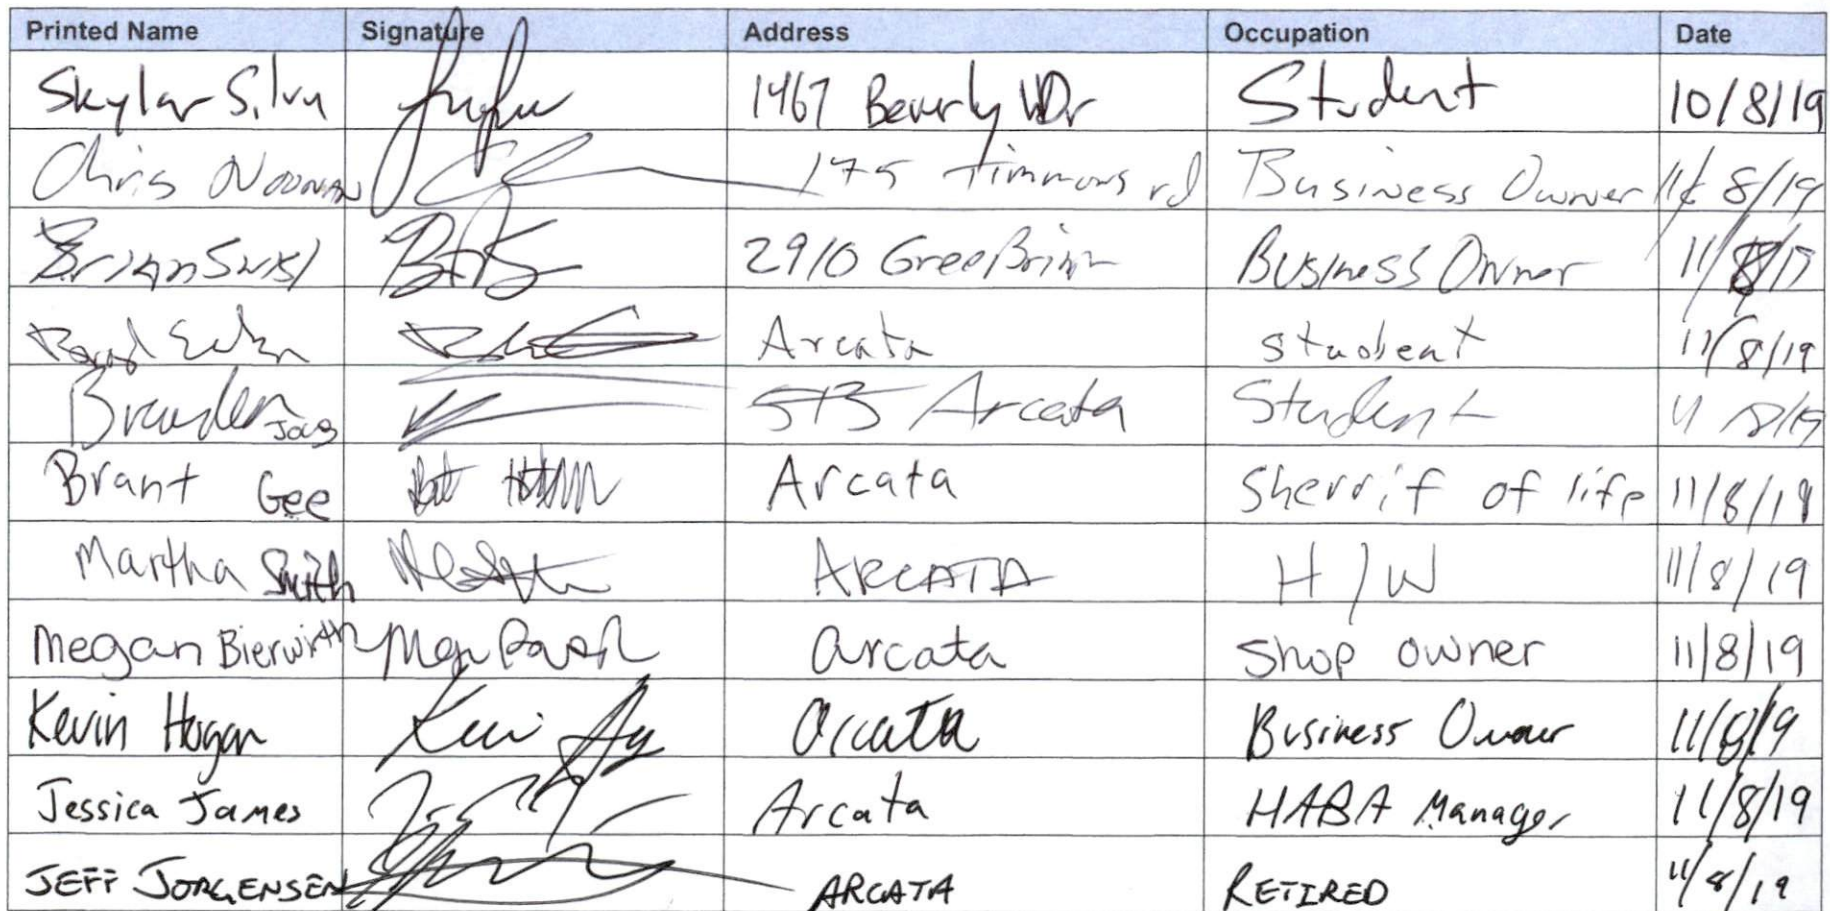 Printed Name Signature Address Occupation Date
Skylar Silva 1467 Beverly Dr Student 10/8/19
Chris Noonan 175 Timmons rd Business Owner 8/19
2910 Business Owner 11/8/19
Arcata student 11/8/19
Branden 513 Arcata Student 8/19
Brant Gee Arcata Sherrif of life 11/8/19
Martha Smith ARCATA H/W 11/8/19
Megan Bierwirth Arcata Shop owner 11/8/19
Kevin Hogan Arcata Business Owner 11/8/19
Jessica James Arcata HABA Manager 11/8/19
JEFF JORGENSEN ARCATA RETIRED 11/8/19